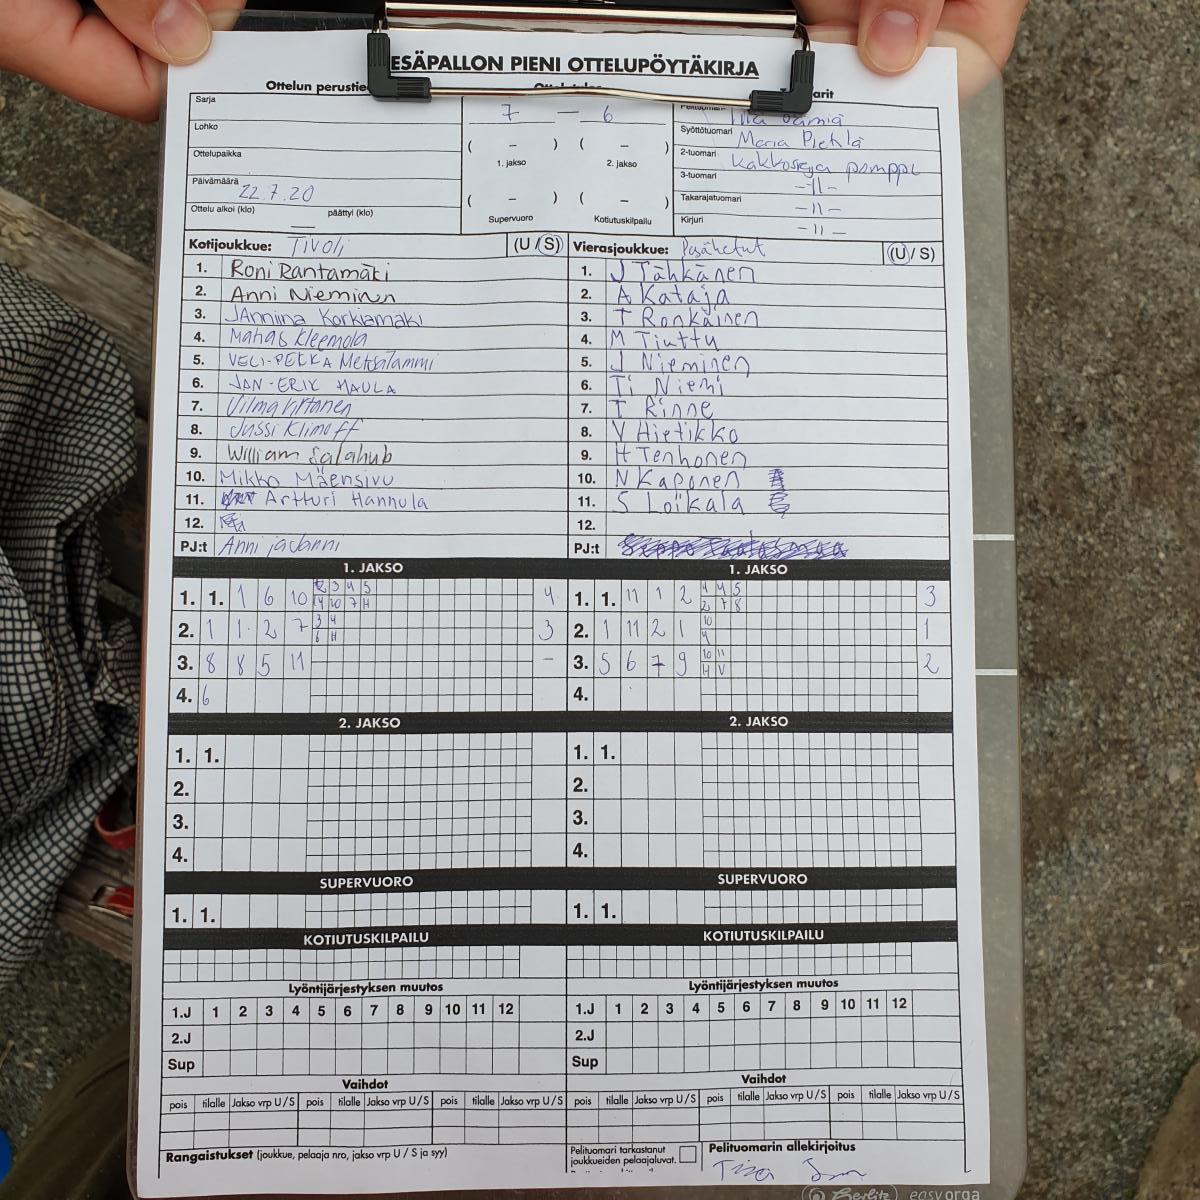 ESÄPALLON PIENI OTTELUPÖYTÄKIRJA
Ottelun perustie
arit
Sarja
Lohko
Ottelupaikka
Päivämäärä 22.7.20
Ottelu alkoi (klo) päättyi (klo)
7 — 6
( – ) ( – )
1. jakso 2. jakso
( – ) ( – )
Supervuoro Kotiutuskilpailu
Syöttötuomari Maria Pietilä
2-tuomari kakkosraja pomppi
3-tuomari -11-
Takarajatuomari -11-
Kirjuri -11-
Kotijoukkue: Tivoli (U/S)
1. Roni Rantamäki
2. Anni Nieminen
3. JAnniina Korkiamäki
4. Kleemola
5. VELI-PEKKA Metsälammi
6. JAN-ERIK MAULA
7. Vilma Virtanen
8. Jussi Klimoff
9. William Salahub
10. Mikko Mäensivu
11. Artturi Hannula
12.
PJ:t Anni ja Janni
Vierasjoukkue: (U/S)
1. J Tähkänen
2. A Kataja
3. T Ronkainen
4. M Tiuttu
5. J Nieminen
6. Ti Niemi
7. T Rinne
8. V Hietikko
9. H Tenhonen
10. N Kaponen
11. S Loikala
12.
PJ:t
1. JAKSO
1. 1. 1 6 10 2 3 4 5 4
4 10 7 H
2. 1 1 2 7 3 4 3
6 H
3. 8 8 5 11 –
4. 6
1. JAKSO
1. 1. 11 1 2 4 4 5 3
2 7 8
2. 1 11 2 1 10 1
4
3. 5 6 7 9 10 11 2
H V
4.
2. JAKSO
1. 1.
2.
3.
4.
2. JAKSO
1. 1.
2.
3.
4.
SUPERVUORO
1. 1.
SUPERVUORO
1. 1.
KOTIUTUSKILPAILU
KOTIUTUSKILPAILU
Lyöntijärjestyksen muutos
1.J 1 2 3 4 5 6 7 8 9 10 11 12
2.J
Sup
Lyöntijärjestyksen muutos
1.J 1 2 3 4 5 6 7 8 9 10 11 12
2.J
Sup
Vaihdot
pois tilalle Jakso vrp U/S pois tilalle Jakso vrp U/S pois tilalle Jakso vrp U/S
Vaihdot
pois tilalle Jakso vrp U/S pois tilalle Jakso vrp U/S pois tilalle Jakso vrp U/S
Rangaistukset (joukkue, pelaaja nro, jakso vrp U/S ja syy)
Pelituomari tarkastanut
joukkueiden pelaajaluvat.
Pelituomarin allekirjoitus
Herlitz easyorga